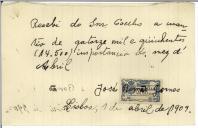 Recebi do Snr Coelho a quan
tia de quatorze mil e quinhentos
(14.500) importancia do mez d'
Abril
José Gomes
Lisboa, 1 de abril de 1909.